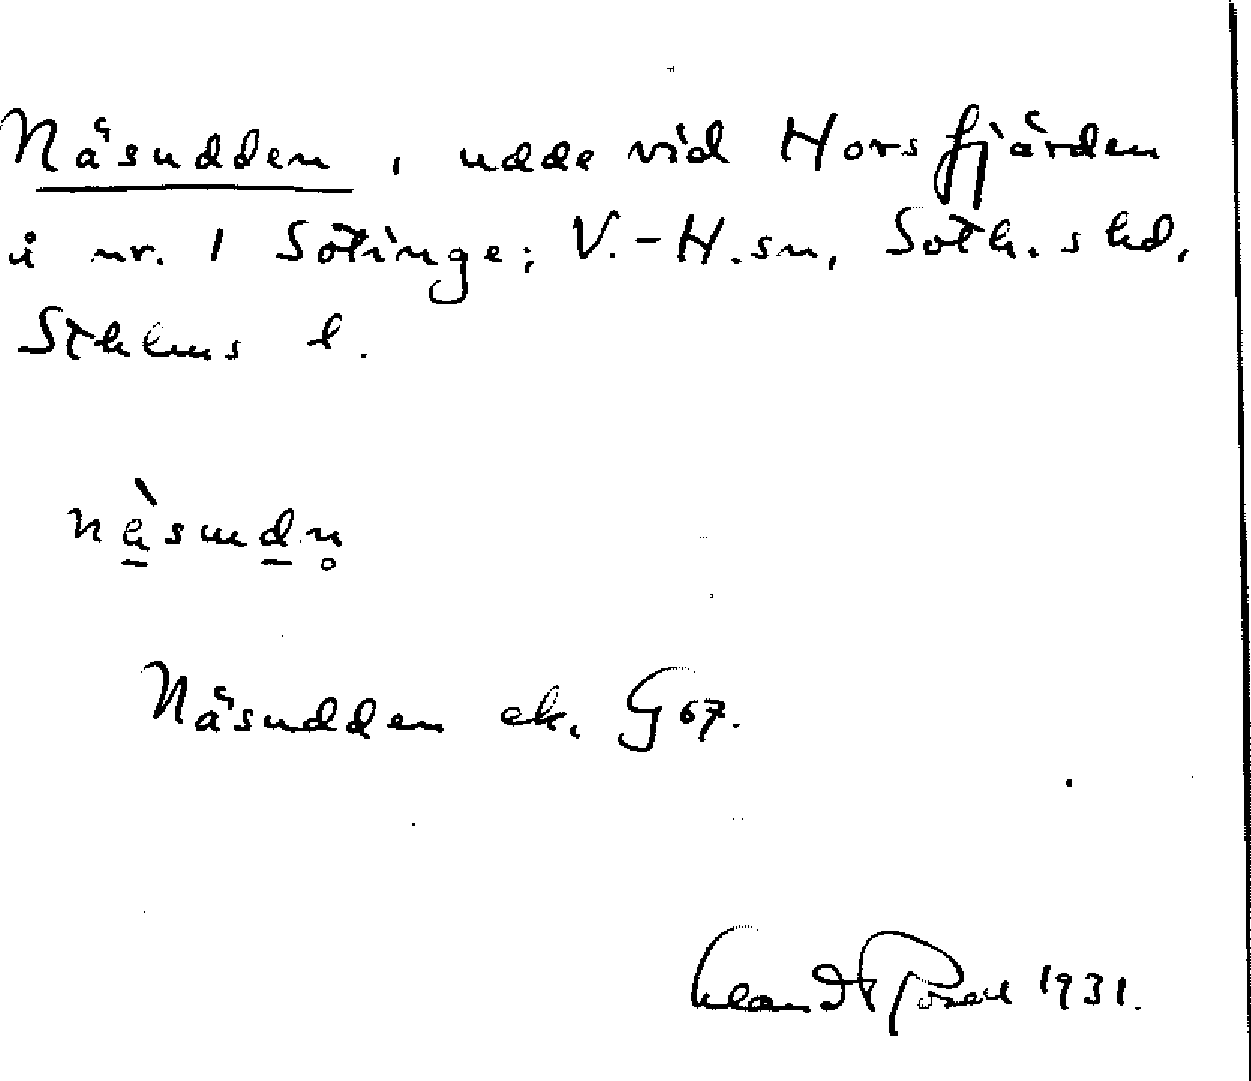 Näsudden, udde vid Horsfjärden
i nr. 1 Sotinge; V.-H. sn, Soth. s hd,
Sthlms l.
Näsudden ek. G 67.
1931.